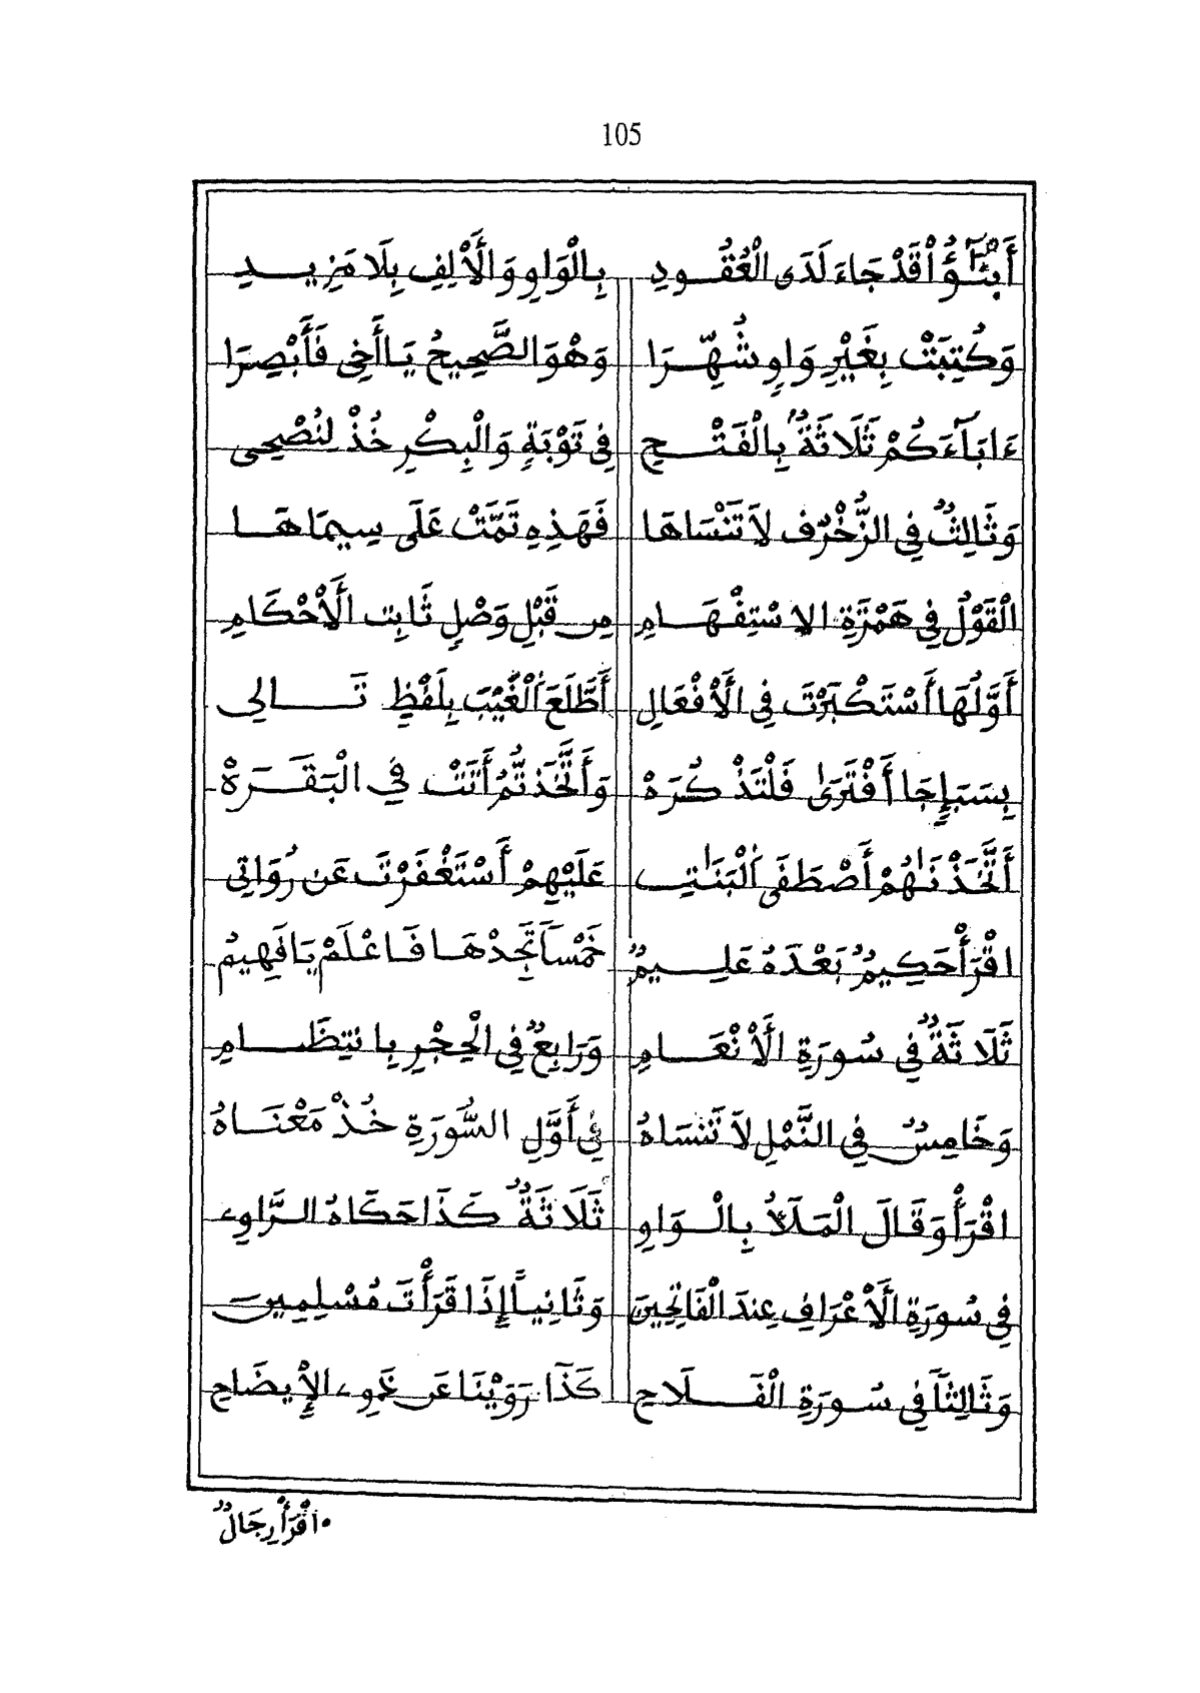 105
أَبْنَٰٓؤُاْ قَدْ جَاءَ لَدَى الْعُقُودِ بِالْوَاوِ وَالْأَلِفِ بِلَا مَزِيدِ
وَكُتِبَتْ بِغَيْرِ وَاوٍ شُهِّرَا وَهْوَ الصَّحِيحُ يَا أَخِي فَأَبْصِرَا
ءَابَآءَكُمْ ثَلَاثَةٌ بِالْفَتْحِ فِي تَوْبَةٍ وَالْبِكْرِ خُذْ لِنُصْحِي
وَثَالِثٌ فِي الزُّخْرُفِ لَا تَنْسَاهَا فَهَذِهِ تَمَّتْ عَلَى سِيمَاهَا
الْقَوْلُ فِي هَمْزَةِ الِاسْتِفْهَامِ مِن قَبْلِ وَصْلٍ ثَابِتِ الْأَحْكَامِ
أَوَّلُهَا أَسْتَكْبَرْتَ فِي الْأَفْعَالِ أَطَّلَعَ الْغَيْبَ بِلَفْظٍ تَالِي
بِسَبَإٍ جَا أَفْتَرَىٰ فَلْتَذْكُرَهْ وَأَتَّخَذتُّمُ أَتَتْ فِي الْبَقَرَهْ
أَتَّخَذْنَٰهُمْ أَصْطَفَى الْبَنَٰتِ عَلَيْهِمْ أَسْتَغْفَرْتَ عَن رُوَاتِي
اقْرَأْ حَكِيمٌ بَعْدَهُ عَلِيمٌ خَمْساً تَجِدْهَا فَاعْلَمْ يَا فَهِيمُ
ثَلَاثَةٌ فِي سُورَةِ الْأَنْعَامِ وَرَابِعٌ فِي الْحِجْرِ بِانتِظَامِ
وَخَامِسٌ فِي النَّمْلِ لَا تَنسَاهُ فِي أَوَّلِ السُّورَةِ خُذْ مَعْنَاهُ
اقْرَأْ وَقَالَ الْمَلَأُ بِالْوَاوِ ثَلَاثَةٌ كَذَا حَكَاهُ الرَّاوِي
فِي سُورَةِ الْأَعْرَافِ عِندَ الْفَاتِحِينَ وَثَانِياً إِذَا قَرَأْتَ مُسْلِمِينَ
وَثَالِثاً فِي سُورَةِ الْفَلَاحِ كَذَا رَوَيْنَا عَن نَحْوِي الْإِيضَاحِ
اقْرَأْ رِجَالٌ